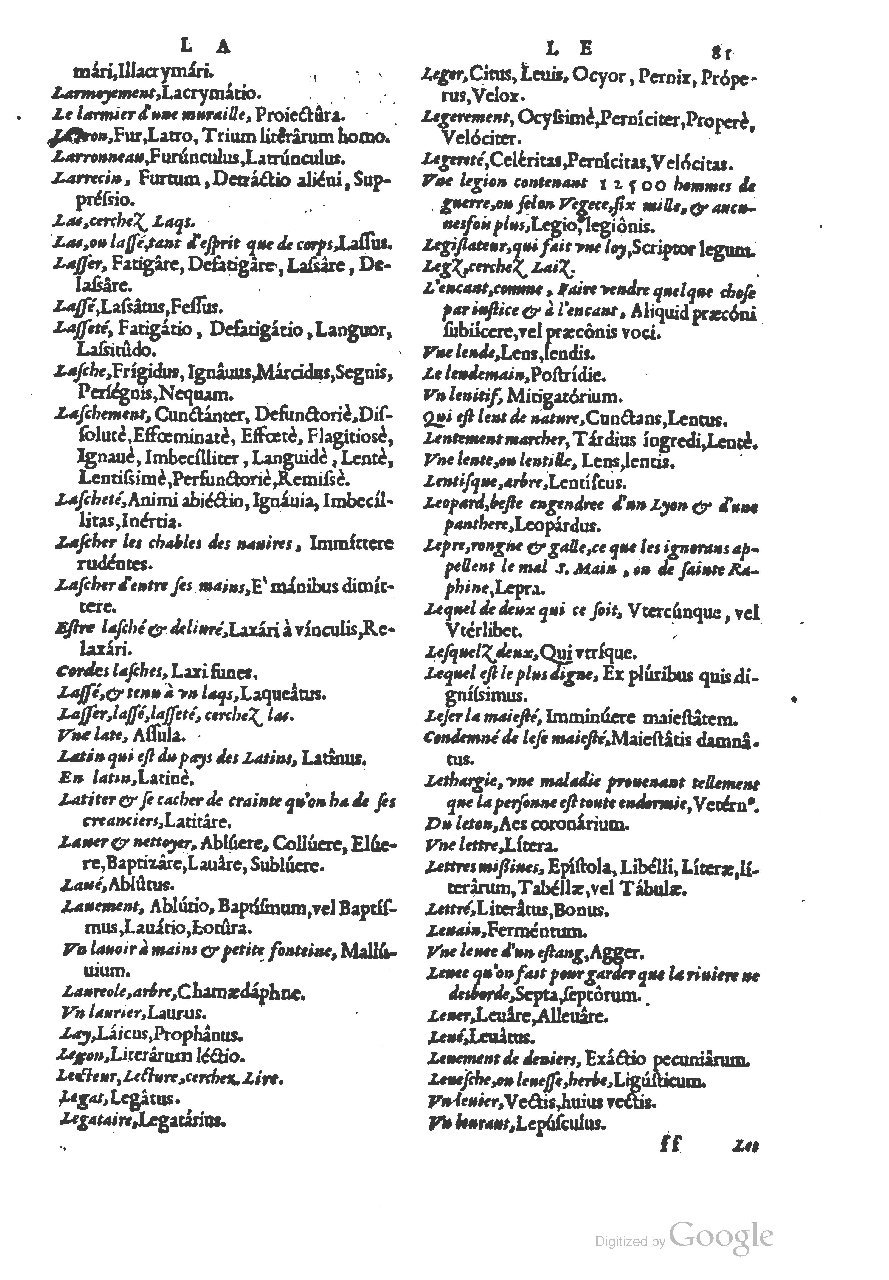 L A
mári,Illacrymári.
Larmoyement,Lacrymátio.
Le larmier d'une muraille, Proiectûra.
Larron,Fur,Latro, Trium literârum homo.
Larronneau,Furúnculus,Latrúnculus.
Larrecin, Furtum, Detráctio aliéni, Sup-
préssio.
Las,cercheZ Laqs.
Las,ou lassé,tant d'esprit que de corps,Lassus.
Lasser, Fatigâre, Defatigâre, Lassâre, De-
lassâre.
Lassé,Lassâtus,Fessus.
Lasseté, Fatigátio, Defatigátio, Languor,
Lassitûdo.
Lasche,Frígidus, Ignâuus,Márcidus,Segnis,
Perségnis,Nequam.
Laschement, Cunctánter, Defunctoriè,Dis-
solutè,Effœminatè, Effœtè, Flagitiosè,
Ignauè, Imbecílliter, Languidè, Lentè,
Lentissimè,Perfunctoriè,Remissè.
Lascheté,Animi abiéctio, Ignáuia, Imbecíl-
litas,Inértia.
Lascher les chables des nauires, Immíttere
rudéntes.
Lascher d'entre ses mains,E' mánibus dimít-
tere.
Estre lasché & deliuré,Laxári à vínculis,Re-
laxári.
Cordes lasches, Laxi funes.
Lassé,& tenu à vn laqs,Laqueâtus.
Lasser,lassé,lasseté, cercheZ las.
Vne late, Assula.
Latin qui est du pays des Latins, Latînus.
En latin,Latinè.
Latiter & se cacher de crainte qu'on ha de ses
creanciers,Latitâre.
Lauer & nettoyer, Ablúere, Collúere, Elúe-
re,Baptizâre,Lauâre, Sublúere.
Laué,Ablûtus.
Lauement, Ablútio, Baptísmum,vel Baptís-
mus,Lauátio,Lotûra.
Vn lauoir à mains & petite fonteine, Mallú-
uium.
Laureole,arbre,Chamædáphne.
Vn laurier,Laurus.
Lay,Láicus,Prophânus.
Leçon,Literârum léctio.
Lecteur,Lecture,cerchez Lire.
Legat,Legâtus.
Legataire,Legatárius.
L E 81
Leger,Citus, Leuis, Ocyor, Pernix, Próper-
rus,Velox.
Legerement, Ocyssimè,Perníciter,Properè,
Velóciter.
Legereté,Celéritas,Pernícitas,Velócitas.
Vne legion contenant 12500 hommes de
guerre,ou selon Vegece,six mille, & aucu-
nesfou plus,Legio,legiônis.
Legislateur,qui fait vne loy,Scriptor legum.
LegZ,cercheZ LaiZ.
L'encant,comme, Faire vendre quelque chose
par iustice & à l'encant, Aliquid præcóni
subiícere,vel præcônis voci.
Vne lende,Lens,lendis.
Le lendemain,Postrídie.
Vn lenitif, Mitigatórium.
Qui est lent de nature,Cunctans,Lentus.
Lentement marcher, Tárdius íngredi,Lentè.
Vne lente,ou lentille, Lens,lentis.
Lentisque,arbre,Lentiscus.
Leopard,beste engendree d'un Lyon & d'une
panthere,Leopárdus.
Lepre,rongne & galle,ce que les ignorans ap-
pellent le mal S. Main, ou de sainte Ra-
phine,Lepra.
Lequel de deux qui ce soit, Vtercúnque, vel
Vtérlibet.
LesquelZ deux,Qui vtrique.
Lequel est le plus digne, Ex plúribus quis di-
gníssimus.
Leser la maiesté, Imminúere maiestâtem.
Condemné de lese maiesté,Maiestâtis damnâ-
tus.
Lethargie, vne maladie prouenant tellement
que la personne est toute endormie,Vetérn⁹.
Du leton,Aes coronárium.
Vne lettre,Lítera.
Lettres missiues, Epístola, Libélli, Líteræ,li-
terârum,Tabéllæ,vel Tábulæ.
Lettré,Literâtus,Bonus.
Leuain,Ferméntum.
Vne leuee d'un estang,Agger.
Leuee qu'on fast pour garder que la riuiere ne
desborde,Septa,septórum.
Leuer,Leuâre,Alleuâre.
Leué,Leuâtus.
Leuement de deniers, Exáctio pecuniârum.
Leuesche,ou leuesse,herbe,Ligústicum.
Vn leuier,Vectis,huius vectis.
Vn leuraut,Lepúsculus.
ff Les
Digitized by Google